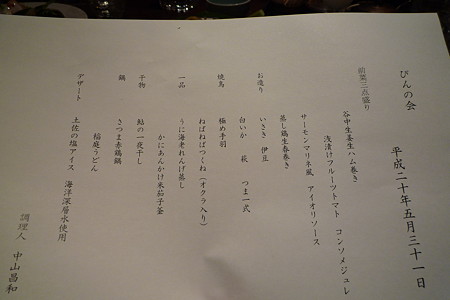 びんの会　平成二十年五月三十一日
前菜三点盛り
谷中生姜生ハム巻き
浅漬けフルーツトマト　コンソメジュレ
サーモンマリネ風　アイオリソース
蒸し鶏生春巻き
お造り
いさき　伊豆
白いか　萩　つま一式
焼鳥
極め手羽
ねばねばつくね（オクラ入り）
一品
うに海老れんげ蒸し
かにあんかけ米茄子釜
干物
鮎の一夜干し
鍋
さつま赤鶏鍋
稲庭うどん
デザート
土佐の塩アイス　海洋深層水使用
調理人　中山昌和